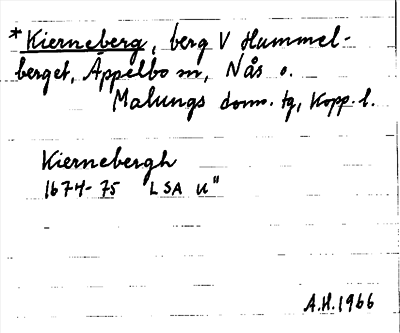 *Kierneberg, berg V Hummel-
berget, Äppelbo sn, Nås o.
Malungs doms. tg, Kopp. l.
Kiernebergh
1674-75 LSA u"
A.H. 1966